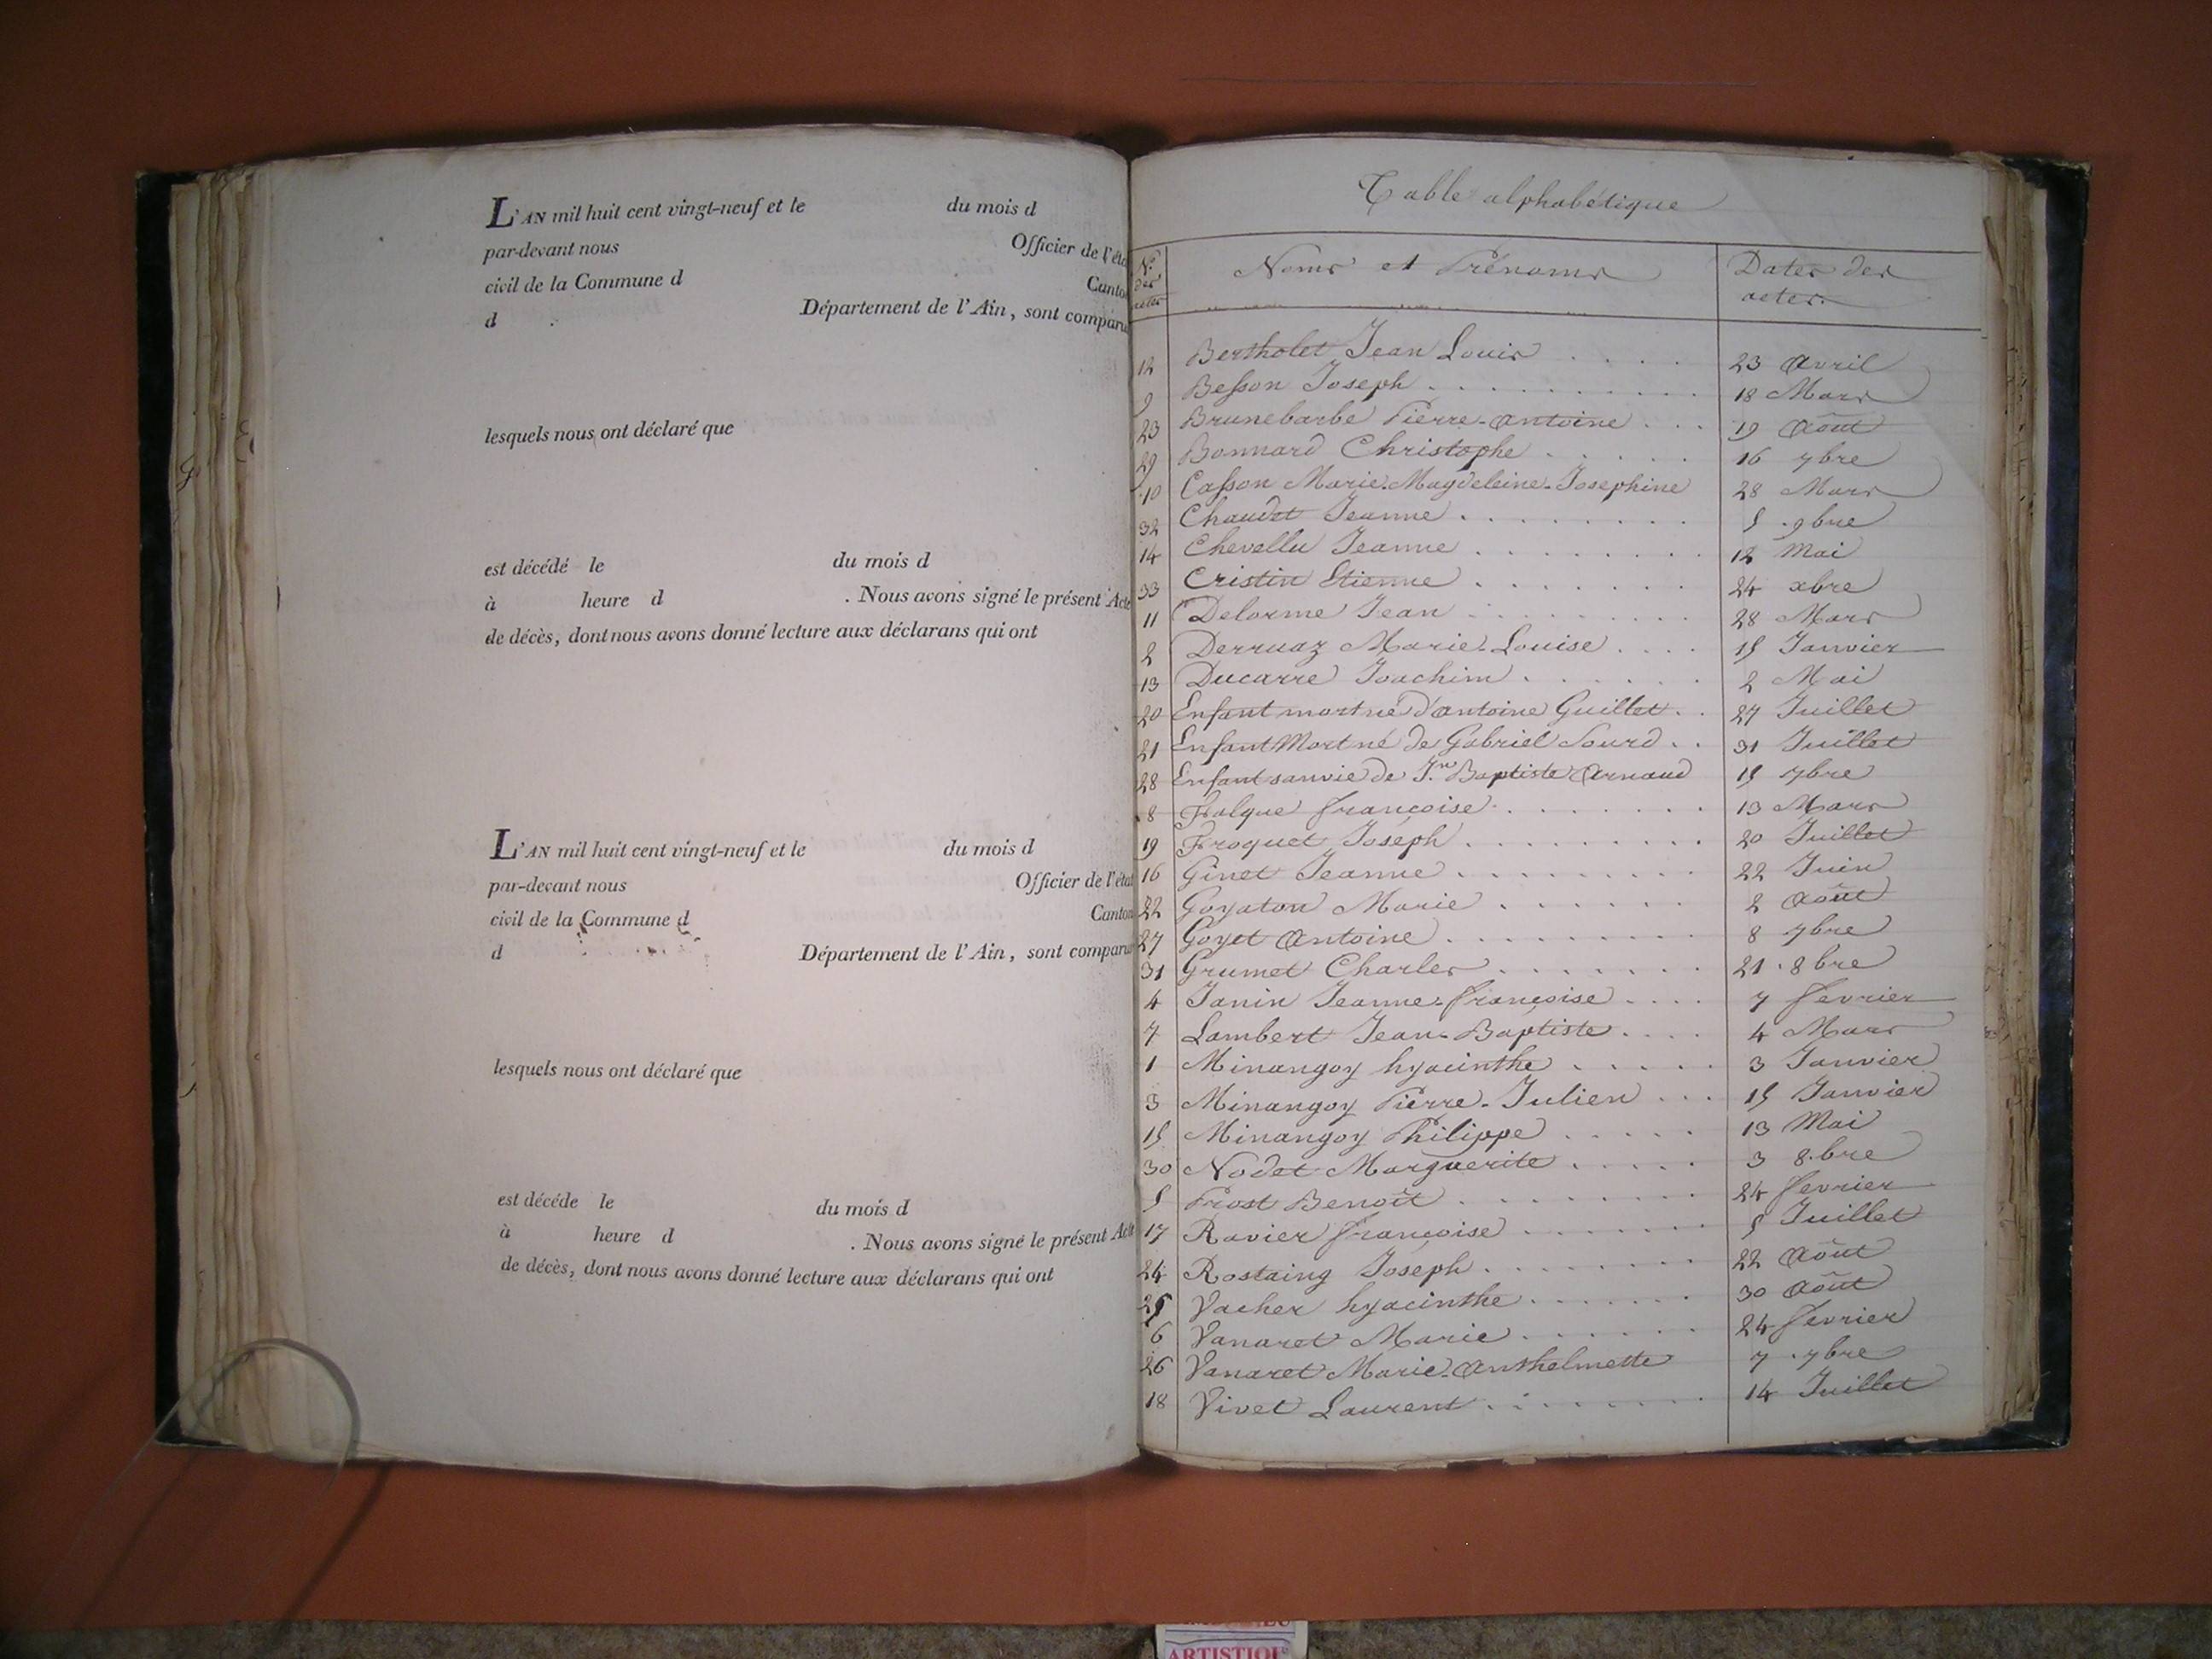 L'AN mil huit cent vingt-neuf et le du mois d
par-devant nous Officier de l'éta
civil de la Commune d Canton
d Département de l'Ain, sont comparu
lesquels nous ont déclaré que
est décédé le du mois d
à heure d . Nous avons signé le présent Acte
de décès, dont nous avons donné lecture aux déclarans qui ont
L'AN mil huit cent vingt-neuf et le du mois d
par-devant nous Officier de l'état
civil de la Commune d Canton
d Département de l'Ain, sont comparu
lesquels nous ont déclaré que
est décéde le du mois d
à heure d . Nous avons signé le présent Acte
de décès, dont nous avons donné lecture aux déclarans qui ont
Table alphabétique
Nos des actes Noms et Prénoms Dates des actes.
12 Bertholet Jean Louis 23 avril
9 Besson Joseph 18 Mars
23 Brunebarbe Pierre-antoine 19 Août
29 Bonnard Christophe 16 7bre
10 Casson Marie-Magdeleine-Josephine 28 Mars
32 Chaudet Jeanne 5 9bre
14 Chevellu Jeanne 12 Mai
33 Cristin Etienne 24 xbre
11 Delorme Jean 28 Mars
2 Derruaz Marie-Louise 15 Janvier
13 Ducarre Joachim 2 Mai
20 Enfant mort né d'antoine Guillet 27 Juillet
21 Enfant Mort né de Gabriel Sourd 31 Juillet
28 Enfant sanvie de Jn Baptiste Arnaud 15 7bre
8 Falque françoise 13 Mars
19 Froquet Joseph 20 Juillet
16 Ginet Jeanne 22 Juin
22 Goyaton Marie 2 août
27 Goyet Antoine 8 7bre
31 Grumet Charles 21 8bre
4 Janin Jeanne-françoise 7 fevrier
7 Lambert Jean-Baptiste 4 Mars
1 Minangoy hyacinthe 3 Janvier
3 Minangoy Pierre-Julien 15 Janvier
15 Minangoy Philippe 13 Mai
30 Nodet Marguerite 3 8.bre
5 Prost Benoît 24 fevrier
17 Ravier françoise 5 Juillet
24 Rostaing Joseph 22 Août
25 Vacher hyacinthe 30 Août
6 Vanaret Marie 24 fevrier
26 Vanaret Marie-Anthelmette 7 7bre
18 Vivet Laurent 14 Juillet